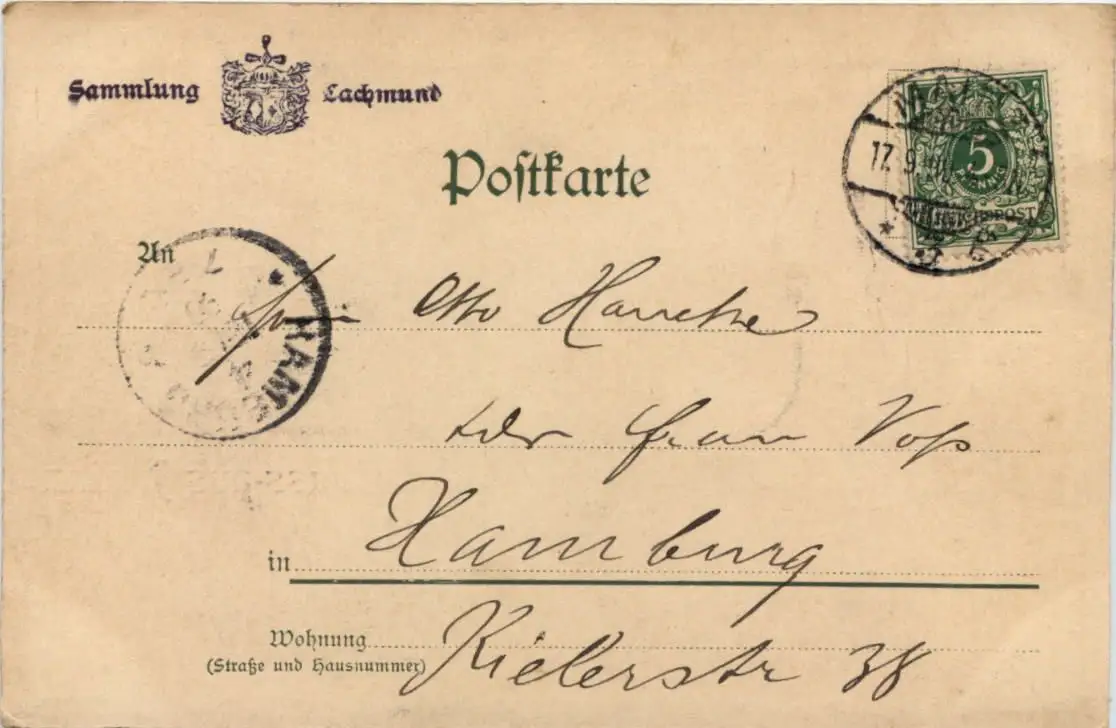 Sammlung Lachmund
5
PFENNIG
REICHSPOST
17. 9.
Postkarte
An
HAMBURG
Otto Hancke
Frau Voß
in Hamburg
Wohnung
(Straße und Hausnummer)
Kielerstr 38